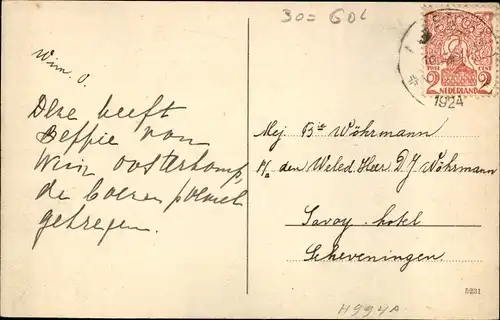 30= 60c
Wim O.
Deze heeft
Beppie van
Wim Oosterkamp,
de boeren
gekregen.
1924
2 CENT 2
NEDERLAND
Mej Bts Wöhrmann
p/a den Weled. Heer D J Wöhrmann
Savoy-hotel
Scheveningen
5231
H994A